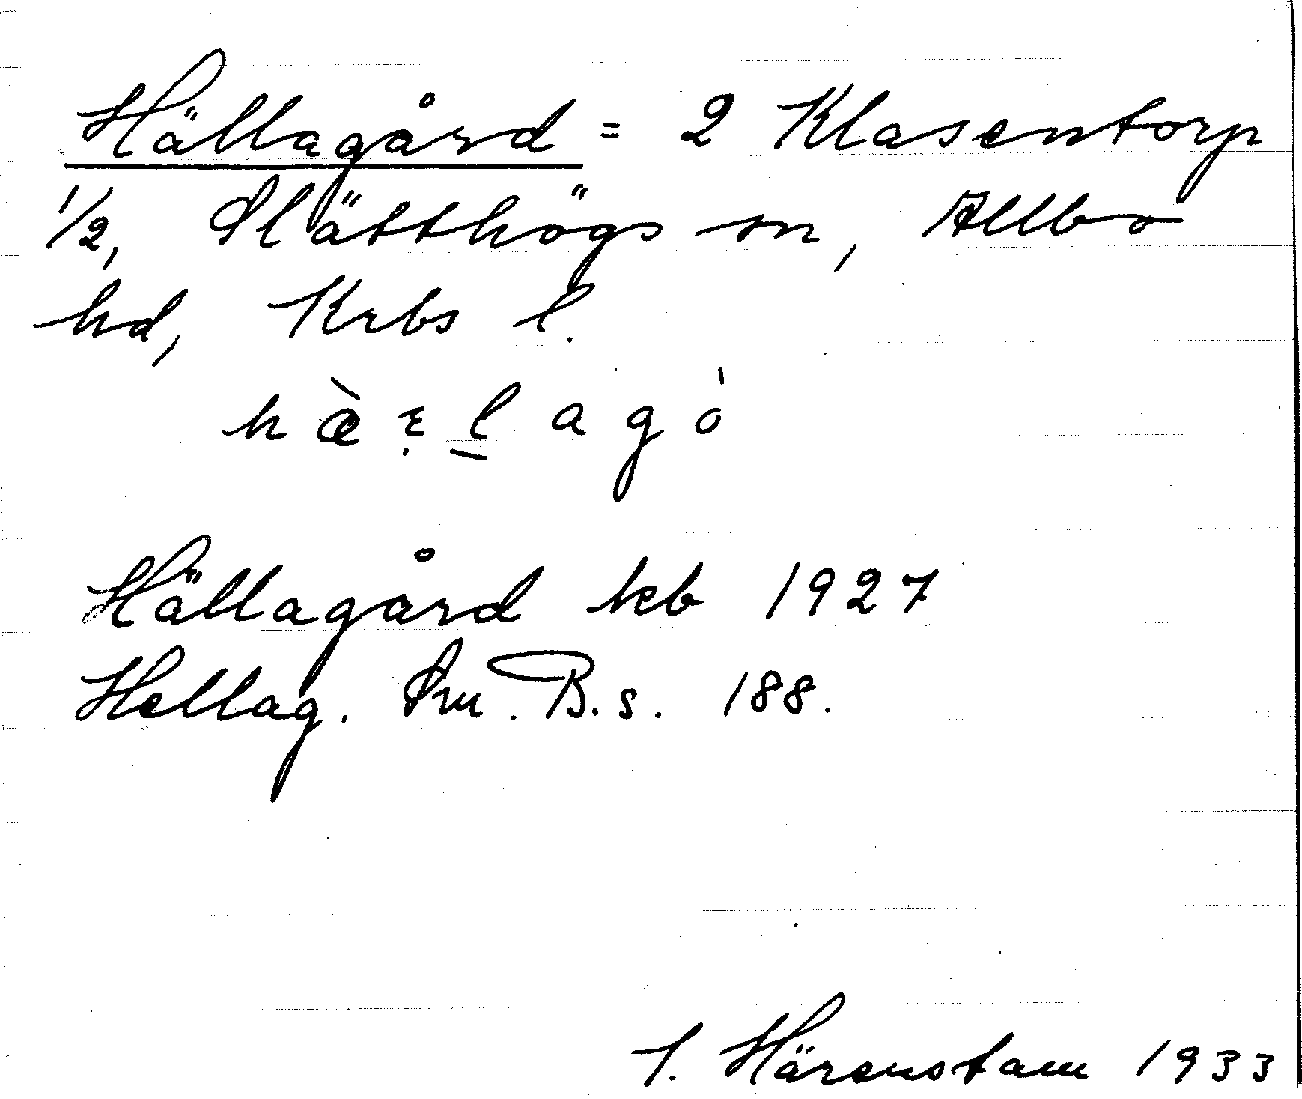 Hällagård = 2 Klasentorp
1/2, Slätthögs sn, Allbo
hd, Krbs l.
Hällagård kb 1927
Hellag. Sm. B. s. 188.
Härenstam 1933